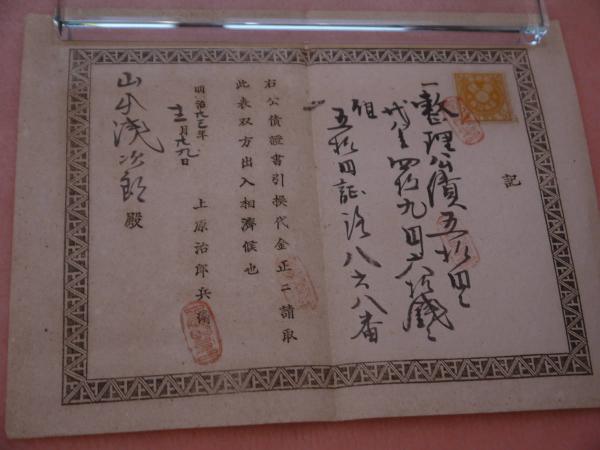 記
一整理公債五拾円
代金四拾九円六拾銭
但
五拾円証 八六八番
右公債證書引換代金正ニ請取
此表双方出入相濟候也
明治
十二月廿九日
上原治郎兵衛
山本浅次郎殿